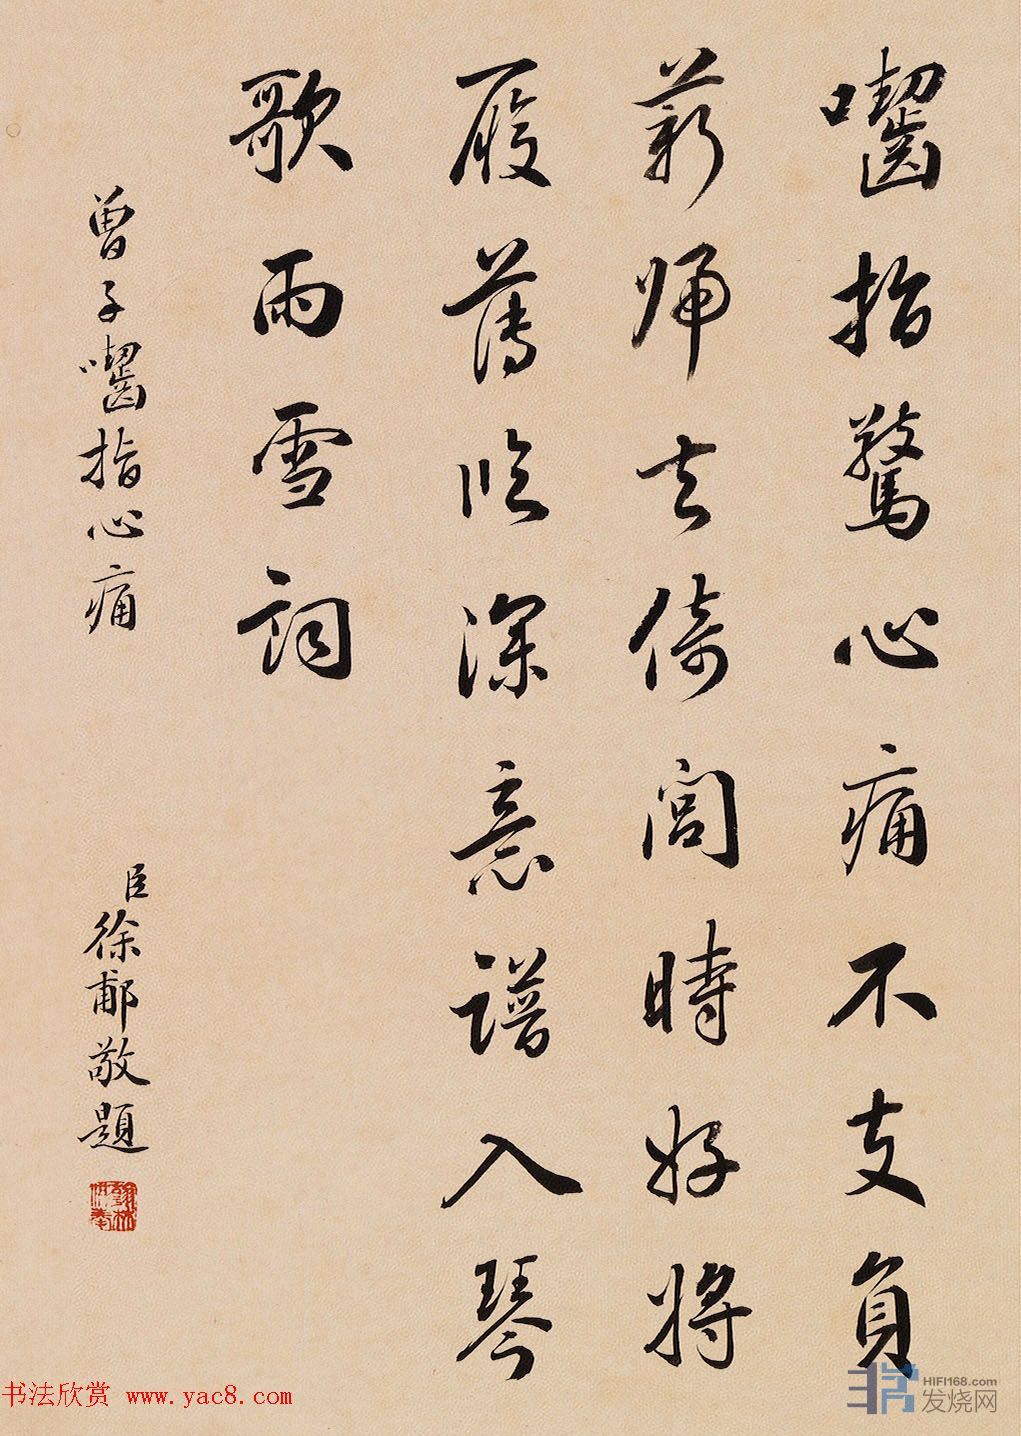 囓指驚心痛不支負
薪歸去倚閭時好將
履薄臨深意譜入琴
歌雨雪詞
曾子囓指心痛
臣徐郙敬題
书法欣赏 www.yac8.com
HIFI168.com
发烧网